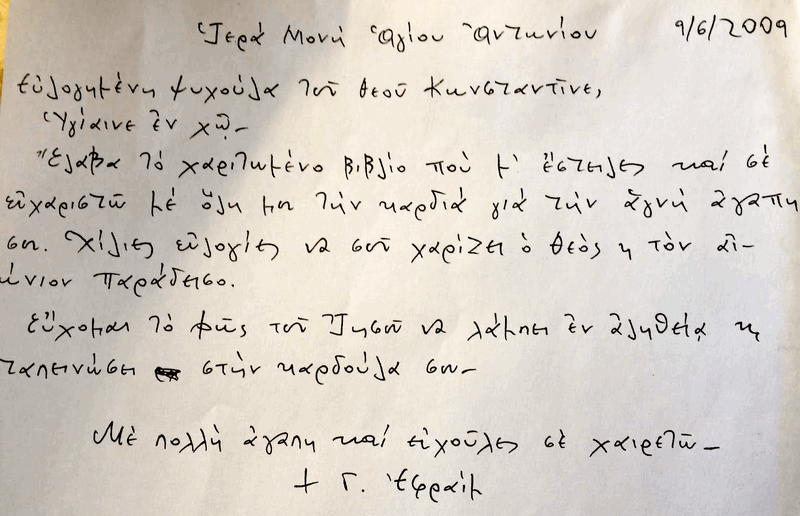 Ἱερά Μονή Ἁγίου Ἀντωνίου 9/6/2009
Εὐλογημένη ψυχούλα τοῦ Θεοῦ Κωνσταντῖνε,
Ὑγίαινε ἐν Χῷ-
Ἔλαβα τό χαριτωμένο βιβλίο πού μ' ἔστειλες καί σέ
εὐχαριστῶ μέ ὅλη μου τήν καρδιά γιά τήν ἁγνή ἀγάπη
σου. Χίλιες εὐλογίες νά σοῦ χαρίζει ὁ Θεός κ τόν αἰ-
ώνιον παράδεισο.
Εὔχομαι τό φῶς τοῦ Ἰησοῦ νά λάμπει ἐν ἀληθείᾳ κ
ταπεινώσει στήν καρδούλα σου-
Μέ πολλή ἀγάπη καί εὐχοῦλες σέ χαιρετῶ-
+ Γ. Ἐφραίμ